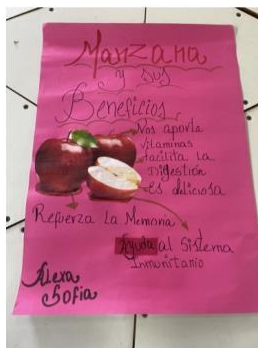 Manzana
y sus
Beneficios
Nos aporta
vitaminas
facilita La
Digestión
es deliciosa
Refuerza La Memoria
Ayuda al Sistema
Inmunitario
Alexa
Sofia